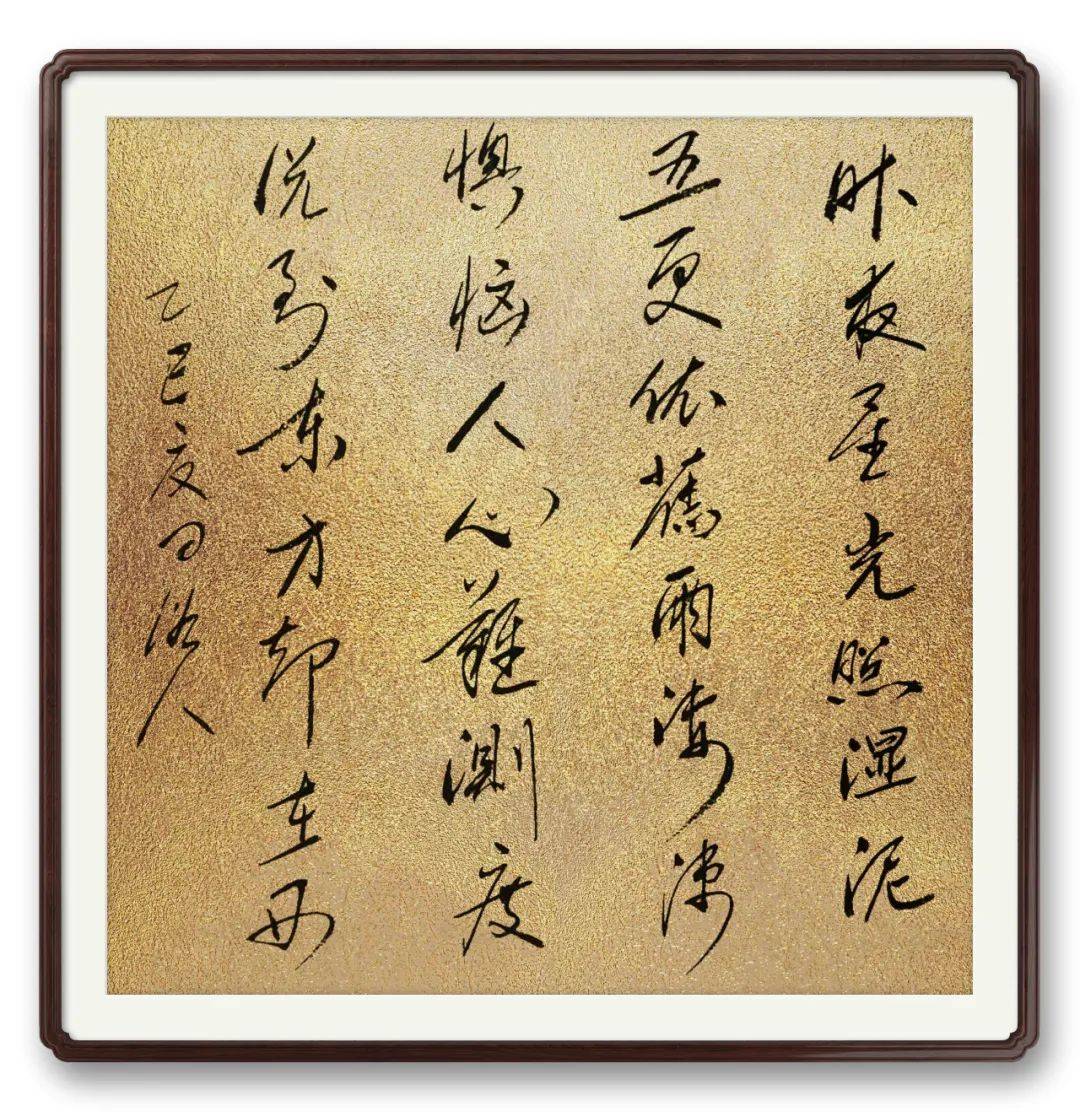 昨夜星光照湿泥
五更依舊雨凄凄
懊恼人心難測度
说到东方却在西
乙巳夏日人